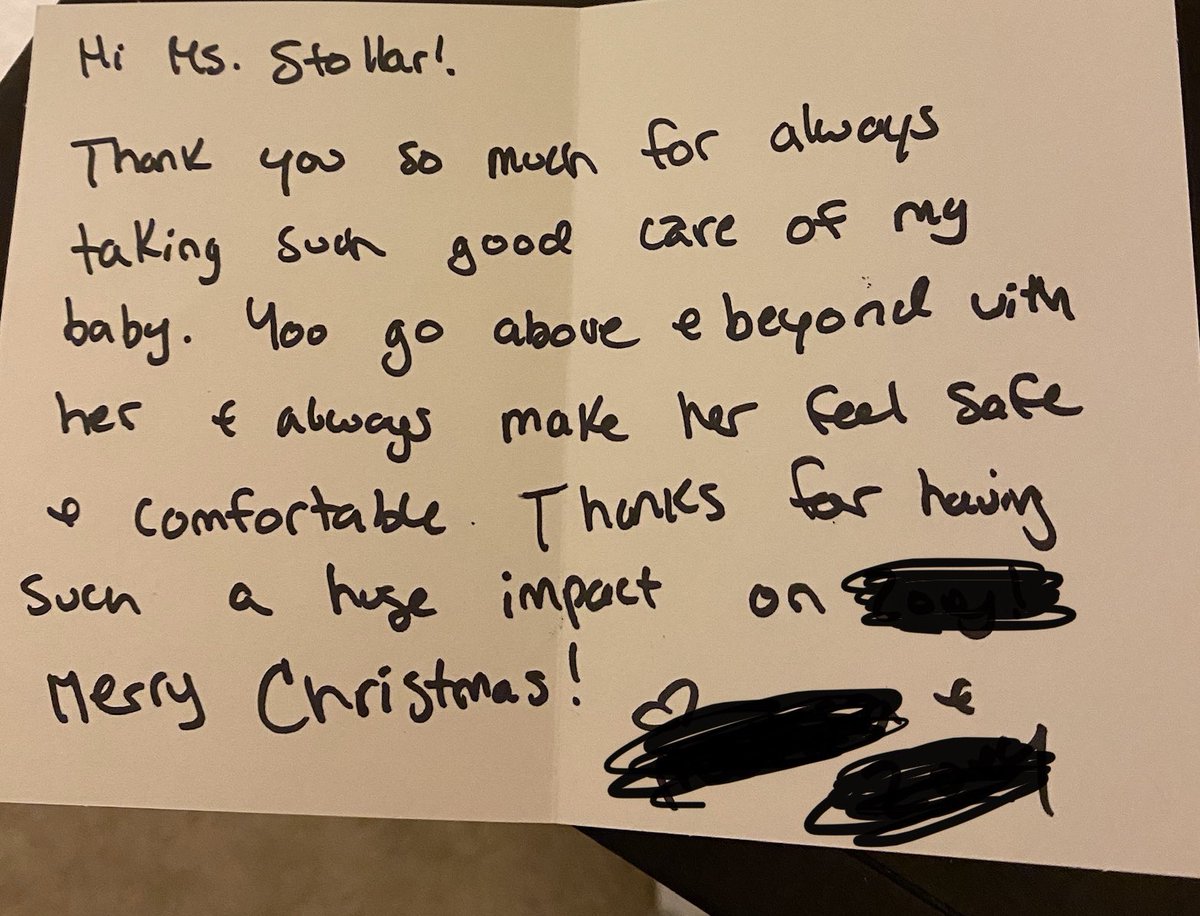 Hi Ms. Stollar!
Thank you so much for always
taking such good care of my
baby. You go above & beyond with
her & always make her feel safe
& comfortable. Thanks for having
such a huge impact on
Merry Christmas!
♡ &